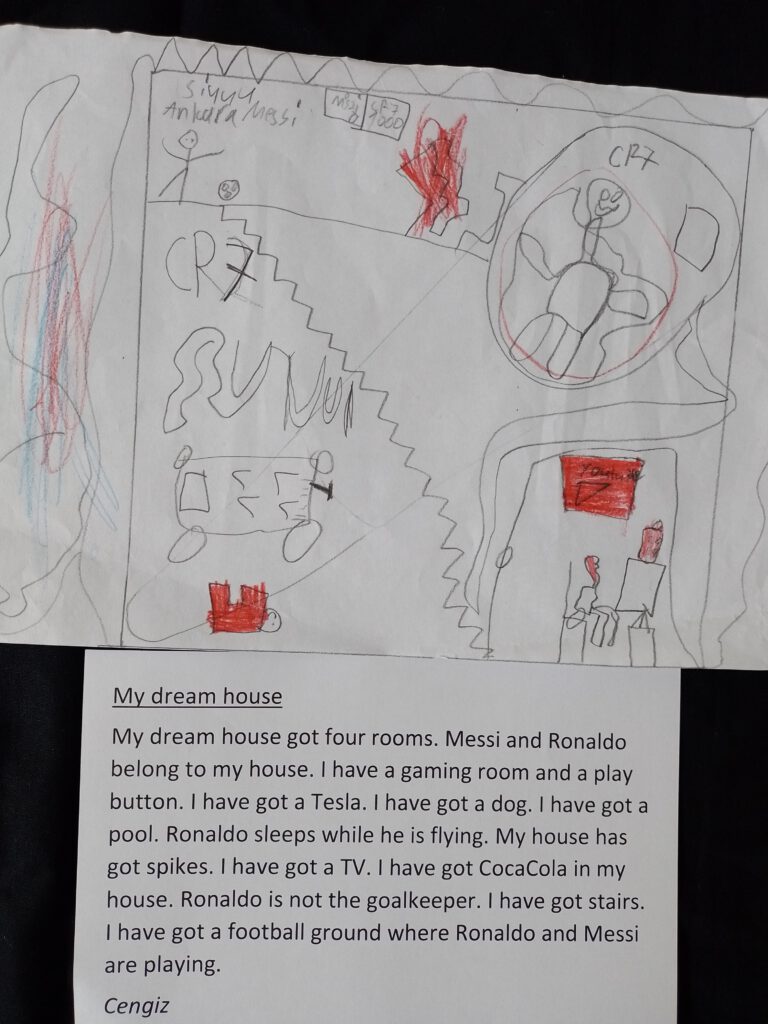 Siuuu
Ankara Messi
Messi CR7
0 1000
CR7
CR7
Youtube
My dream house
My dream house got four rooms. Messi and Ronaldo
belong to my house. I have a gaming room and a play
button. I have got a Tesla. I have got a dog. I have got a
pool. Ronaldo sleeps while he is flying. My house has
got spikes. I have got a TV. I have got CocaCola in my
house. Ronaldo is not the goalkeeper. I have got stairs.
I have got a football ground where Ronaldo and Messi
are playing.
Cengiz